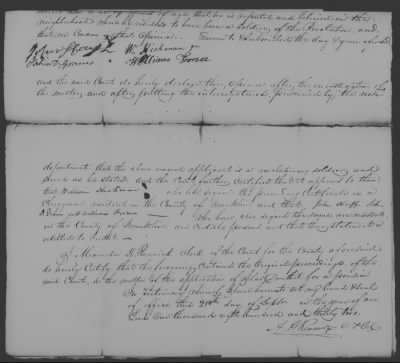 years of age that he is reputed and believed in the
neighborhood where he resides to have been a soldier of the Revolution, and
that we concur in that opinion. Sworn to & subscribed the day & year aforesaid
Wm Hickman
William
and the said Court do hereby declare their opinion after the investigation of
the matter, and after putting the interrogatories prescribed by the war
department that the above named applicant is a revolutionary soldier and
served as he states. and the Court further certifies that it appears to them
that William Hickman who has signed the preceding certificate is a
Clergyman resident in the County of Franklin and that John
and William who have also signed the same are residents
in the County of Franklin, are credible persons and that their statement is
entitled to credit
I Alexander H Rennick Clerk of the Court for the County aforesaid
do hereby Certify that the foregoing contains the original proceedings of the
said Court in the matter of the application of for a pension
In testimony whereof I have hereunto set my hand & seal
of office this day of Septr in the year of our
Lord one thousand eight hundred and thirty two.
A H Rennick